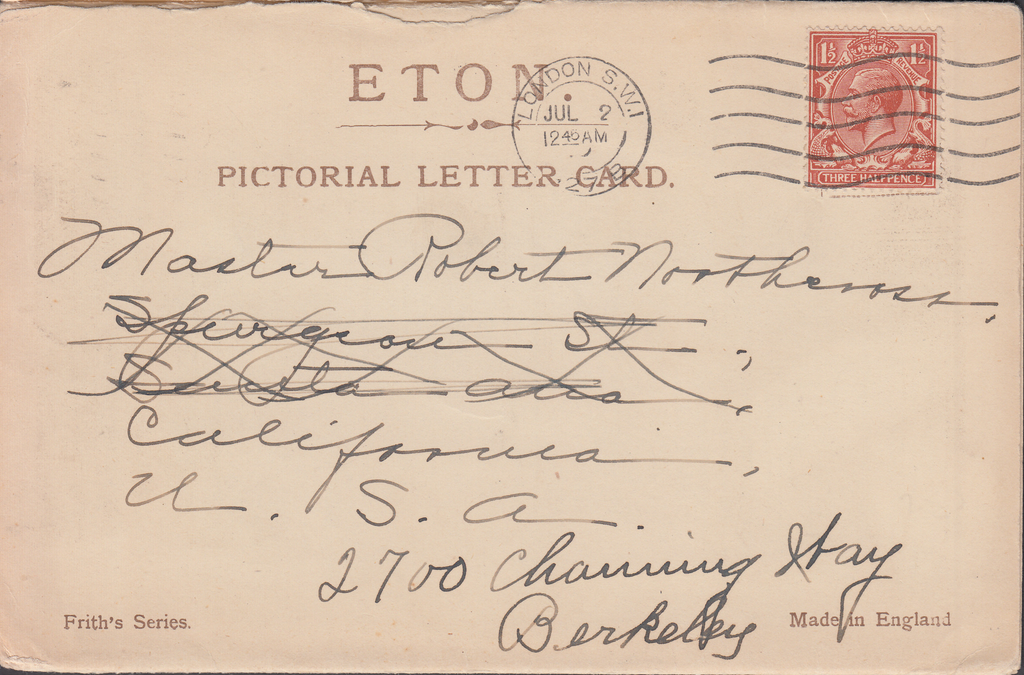 ETON.
PICTORIAL LETTER CARD.
LONDON S.W.1
JUL 2
12 45 AM
27
1½ POSTAGE REVENUE 1½
THREE HALFPENCE
Master Robert Northcross,
Spurgeon St.,
Santa Ana,
California,
U. S. A.
2700 Channing Way
Berkeley
Frith's Series.
Made in England